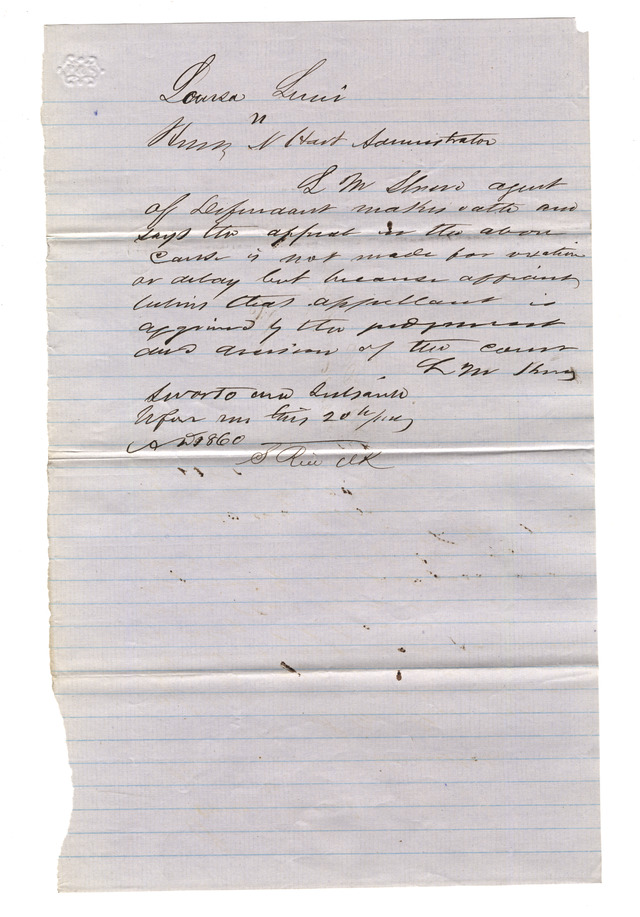 Louisa Lewis
vs
Henry N Hart Administrator
L M Shreve agent
of Defendant makes oath and
says the appeal in the above
cause is not made for vexation
or delay but because affiant
believes that appellant is
aggrieved by the judgment
and decision of the court
L M Shreve
Sworn to and Subscribed
before me this 20th
A D 1860
S Rice Clk